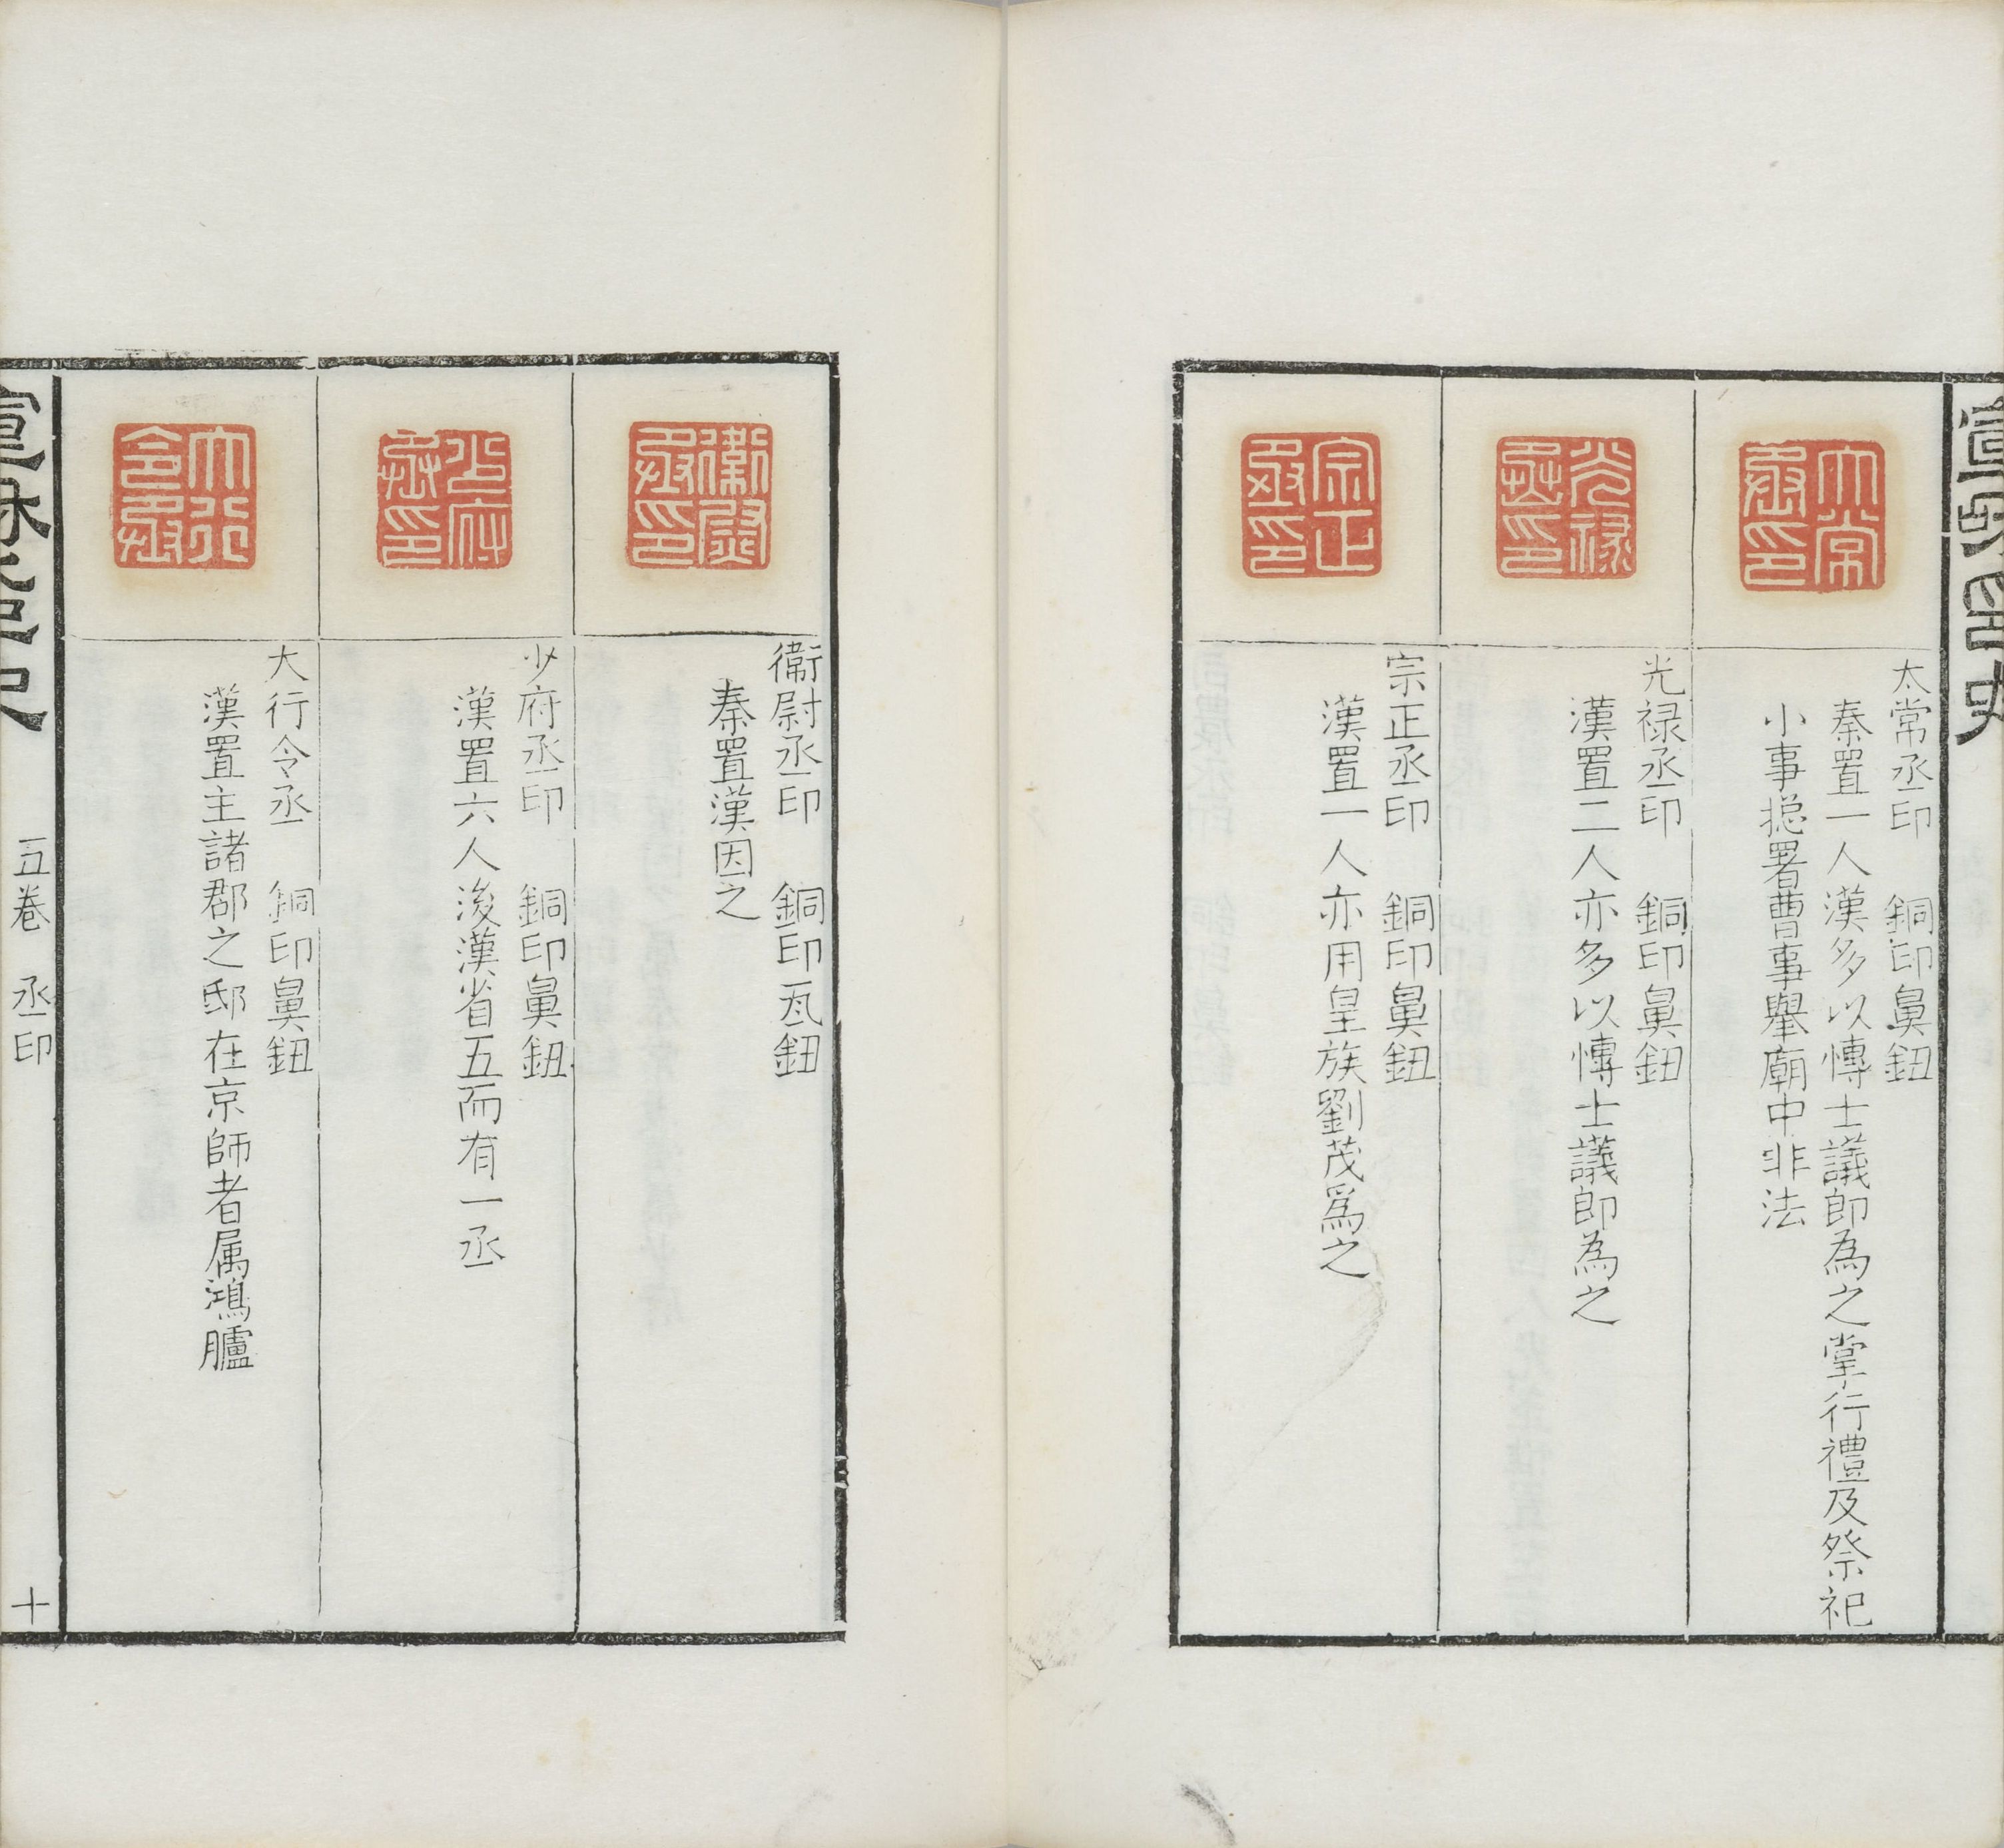 太常丞印
太常丞印　銅印鼻鈕
秦置一人漢多以愽士議郎為之掌行禮及祭祀
小事捴署曹事舉廟中非法
光禄丞印
光禄丞印　銅印鼻鈕
漢置二人亦多以愽士議郎為之
宗正丞印
宗正丞印　銅印鼻鈕
漢置一人亦用皇族劉茂爲之
衞尉丞印
衞尉丞印　銅印瓦鈕
秦置漢因之
少府丞印
少府丞印　銅印鼻鈕
漢置六人後漢省五而有一丞
大行令丞
大行令丞　銅印鼻鈕
漢置主諸郡之邸在京師者属鴻臚
五卷　丞印
十